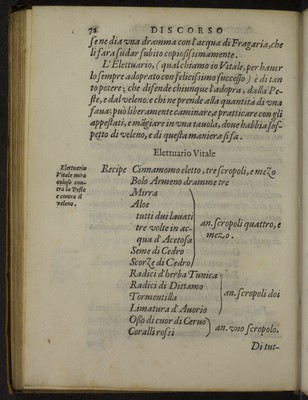 72 DISCORSO
se ne dia vna dramma con l'acqua di Fragaria, che
li fara sudar subito copiosissimamente.
L'Elettuario, (qual chiamo io Vitale, per hauer
lo sempre adoprato con felicissimo successo) è di tan
to potere; che difende chiunque l'adopra, dalla Pe-
ste, e dal veleno. e chi ne prende alla quantità di vna
faua; può liberamente caminare, e pratticare con gli
appestati, e mãgiare in vna tauola, doue habbia sos-
petto di veleno, e di questa maniera si fa.
Elettuario Vitale
Elettuario
Vitale mira
coloso con-
tra la Peste
e contra il
veleno.
Recipe Cinnamomo eletto, tre scropoli, e mezo
Bolo Armeno dramme tre
Mirra
Aloe
tutti dui lauati
tre volte in ac-
qua d'Acetosa
Seme di Cedro
Scorze di Cedro
an. scropoli quattro, e
mezo.
Radici d'herba Tunica
Radici di Dittamo
Tormentilla
Limatura d'Auorio
an. scropoli doi
Osso di cuor di Ceruo
Coralli rossi
an. vno scropolo.
Di tut-